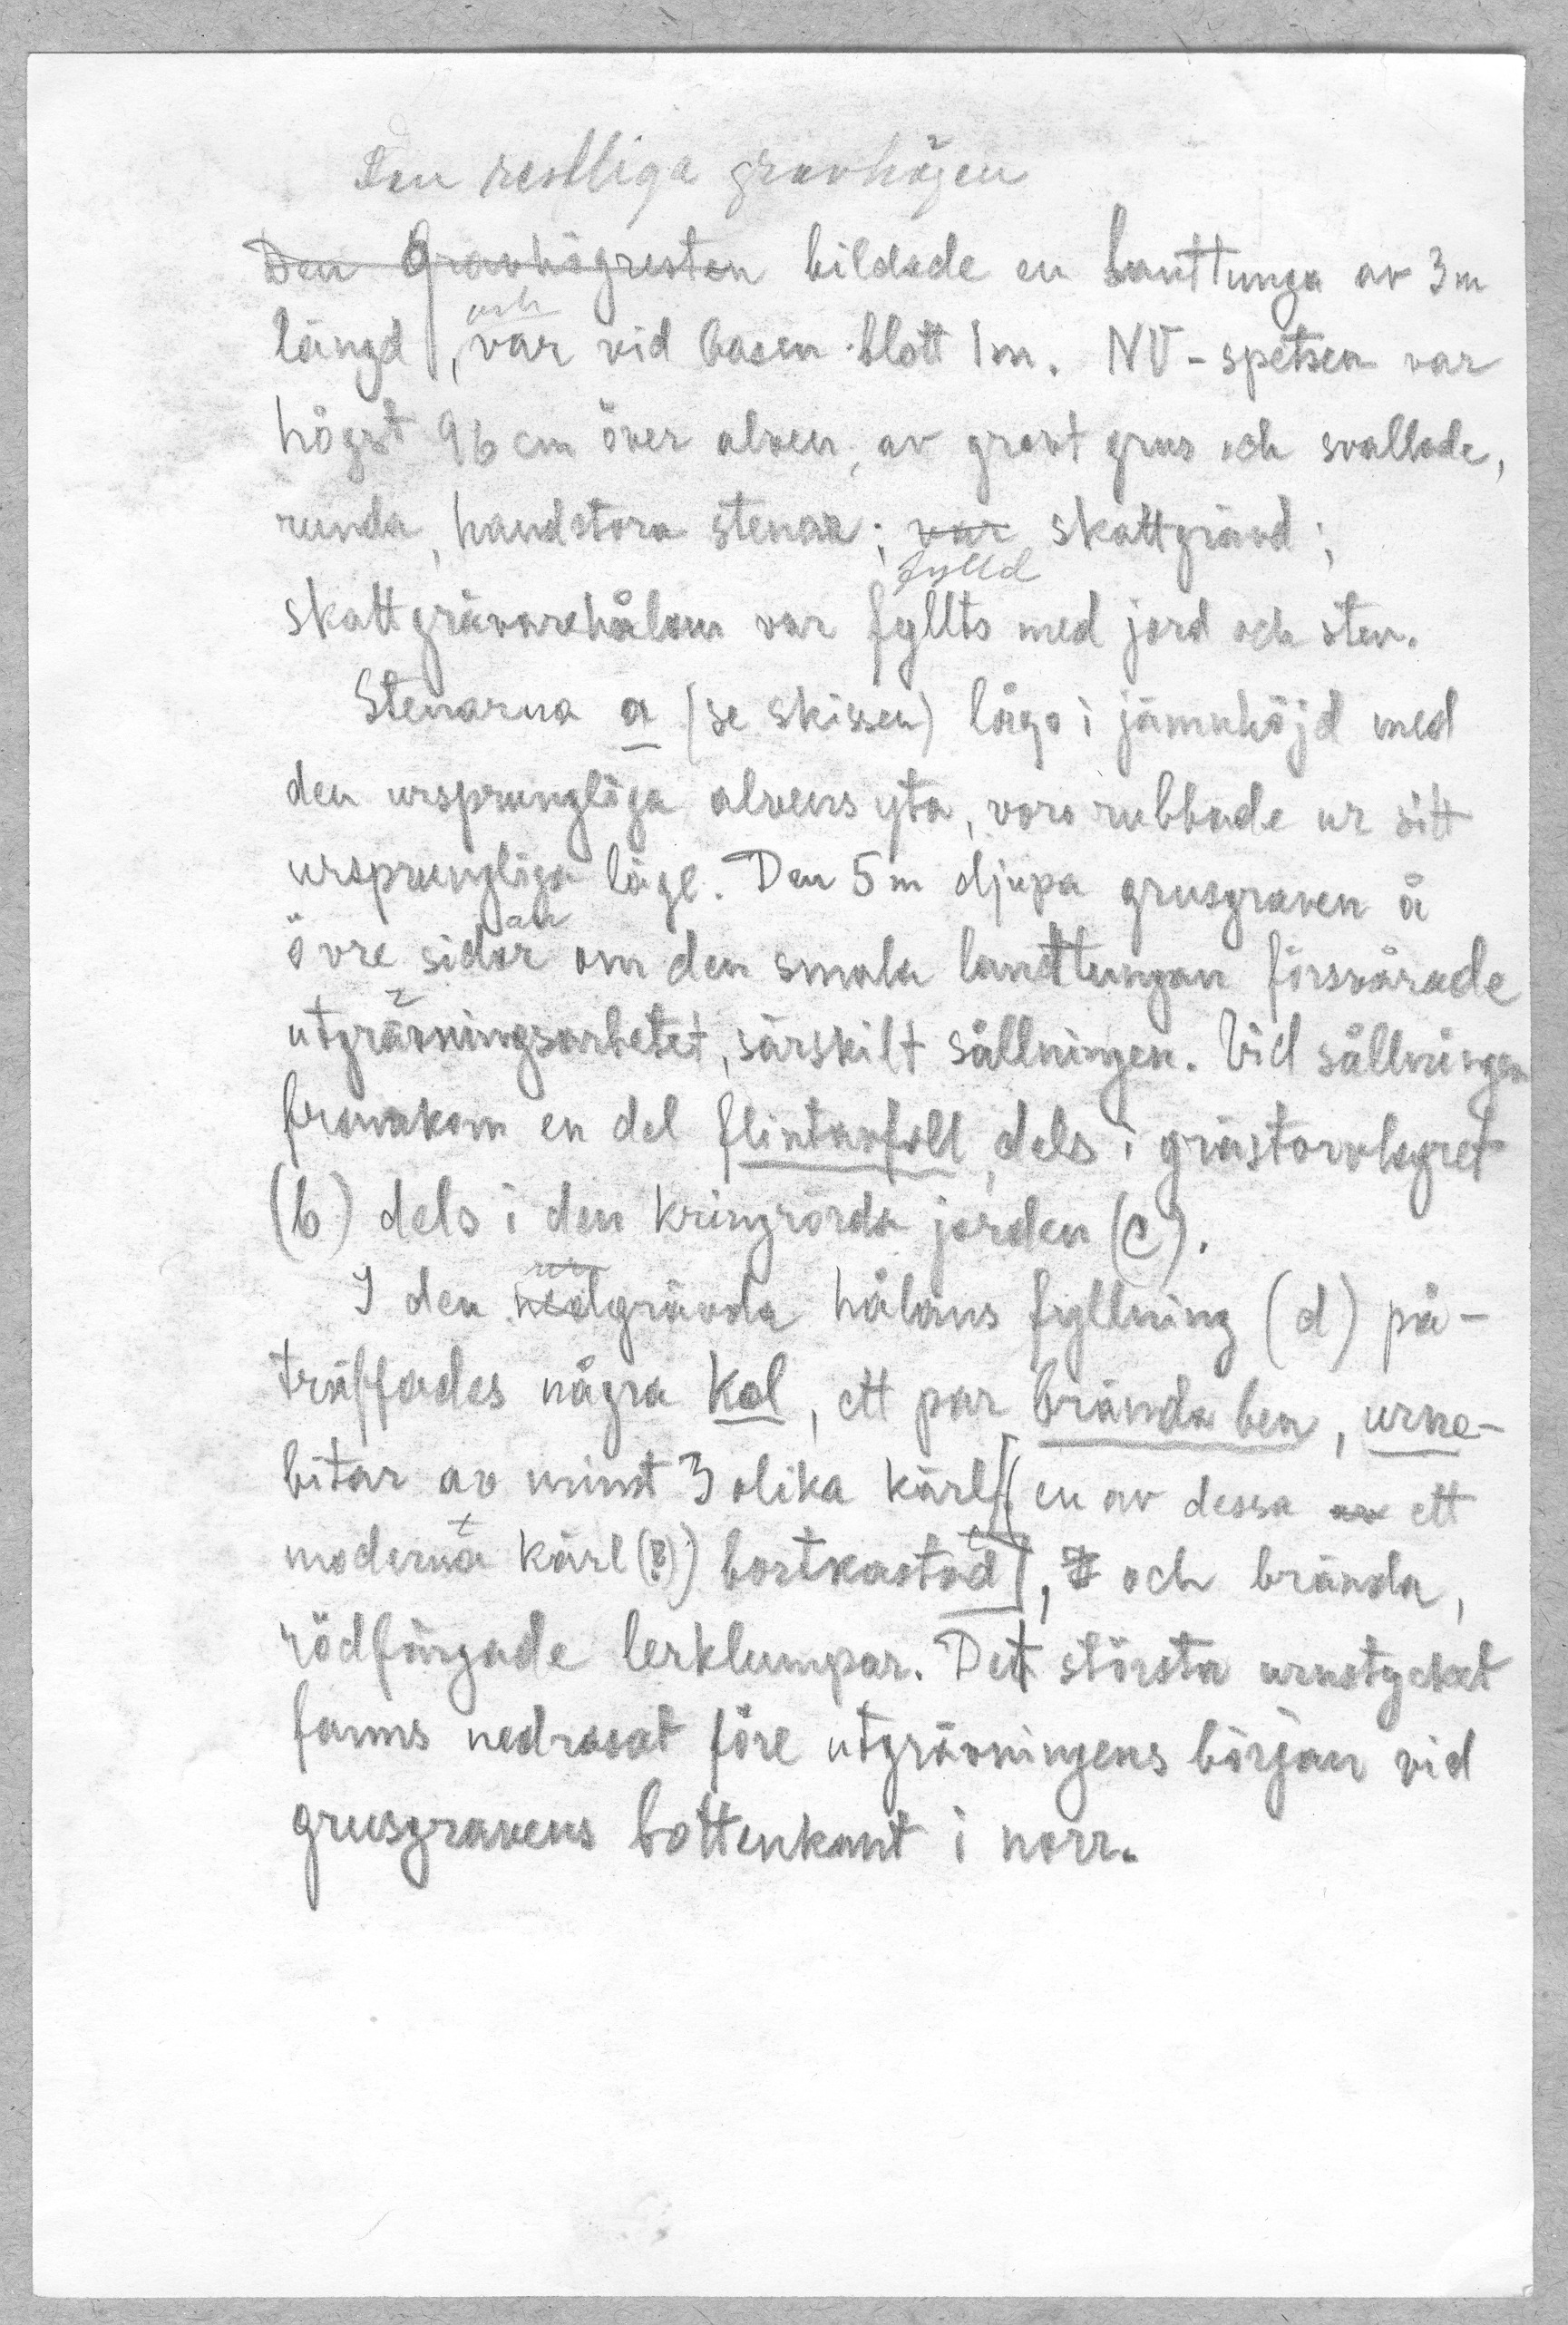 Den restliga gravhögen
Den Gravhögresten bildade en Lanttunga av 3 m
och
längd, var vid basen blott 1 m. NV-spetsen var
högst 96 cm över alven, av grovt grus och svallade,
runda, handstora stenar; var skattgrävd;
fylld
skattgrävarehålan var fyllts med jord och sten.
Stenarna a (se skissen) lågo i jämnhöjd med
den ursprungliga alvens yta, voro rubbade ur sitt
ursprungliga läge. Den 5 m djupa grusgraven å
an
övre sidor om den smala landtungan försvårade
utgrävningsarbetet, särskilt sållningen. Vid sållningen
framkom en del flintavfall, dels i grästorvlagret
(b) dels i den kringrörda jorden (c).
I den nedgrävda hålans fyllning (d) på-
träffades några kol, ett par brända ben, urne-
bitar av minst 3 olika kärl [(en av dessa av ett
moderna kärl (?)) bortkastad], och brända,
rödfärgade lerklumpar. Det största urnstycket
fanns nedrasat före utgrävningens början vid
grusgravens bottenkant i norr.